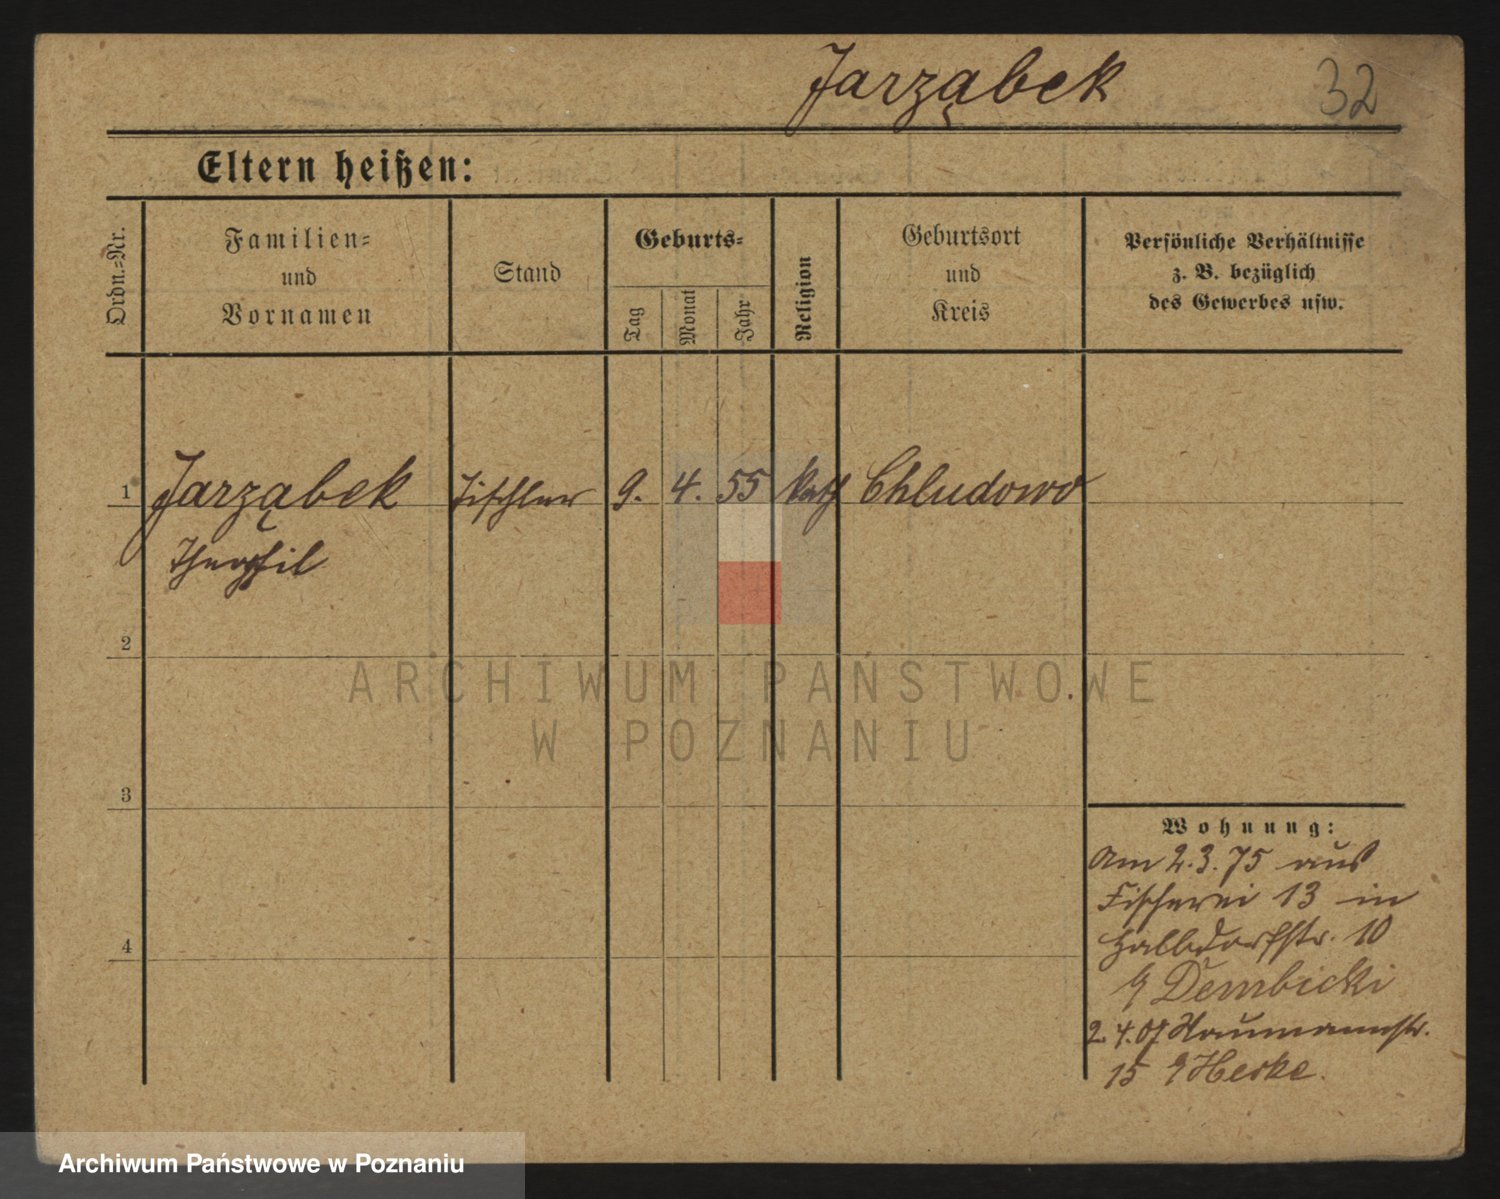 Jarząbek 32
Eltern heißen:
Ordn.-Nr.
Familien-
und
Vornamen
Stand
Geburts-
Tag
Monat
Jahr
Religion
Geburtsort
und
Kreis
Persönliche Verhältnisse
z. B. bezüglich
des Gewerbes usw.
1 Jarząbek Tischler 9. 4. 55 kath Chludowo
Theophil
2
3
4
ARCHIWUM PAŃSTWOWE
W POZNANIU
Wohnung:
Am 2.3.75 aus
Fischerei 13 in
Halbdorfstr. 10
Dembicki
2.4.07 Naumannstr.
15 Heske.
Archiwum Państwowe w Poznaniu